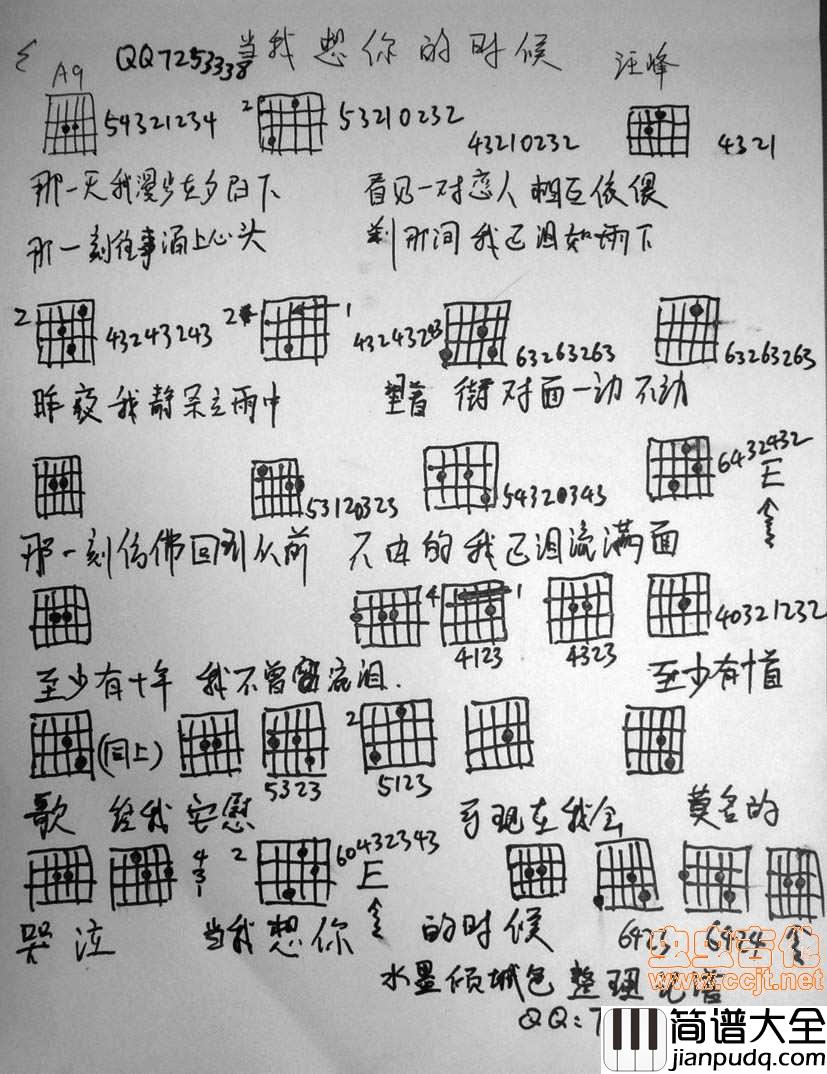 QQ7253338 当我想你的时候 汪峰
A9
54321234 2 53210232 43210232 4321
那一天我漫步在夕阳下 看见一对恋人相互依偎
那一刻往事涌上心头 刹那间我已泪如雨下
2 43243243 2 1 43243243 63263263 63263263
昨夜我静呆立雨中 望着街对面一动不动
53120323 54320343 6432432
E
那一刻仿佛回到从前 不由的我已泪流满面
4 1 4123 4323 40321232
至少有十年 我不曾流泪. 至少有十首
(同上) 5323 2 5123
歌 给我安慰 可现在我会 莫名的
4 3 1 2 60432343
E
哭泣 当我想你 的时候 6423 6424
虫虫吉他
www.ccjt.net
水墨倾城色 整理
QQ:7
简谱大全
jianpudq.com